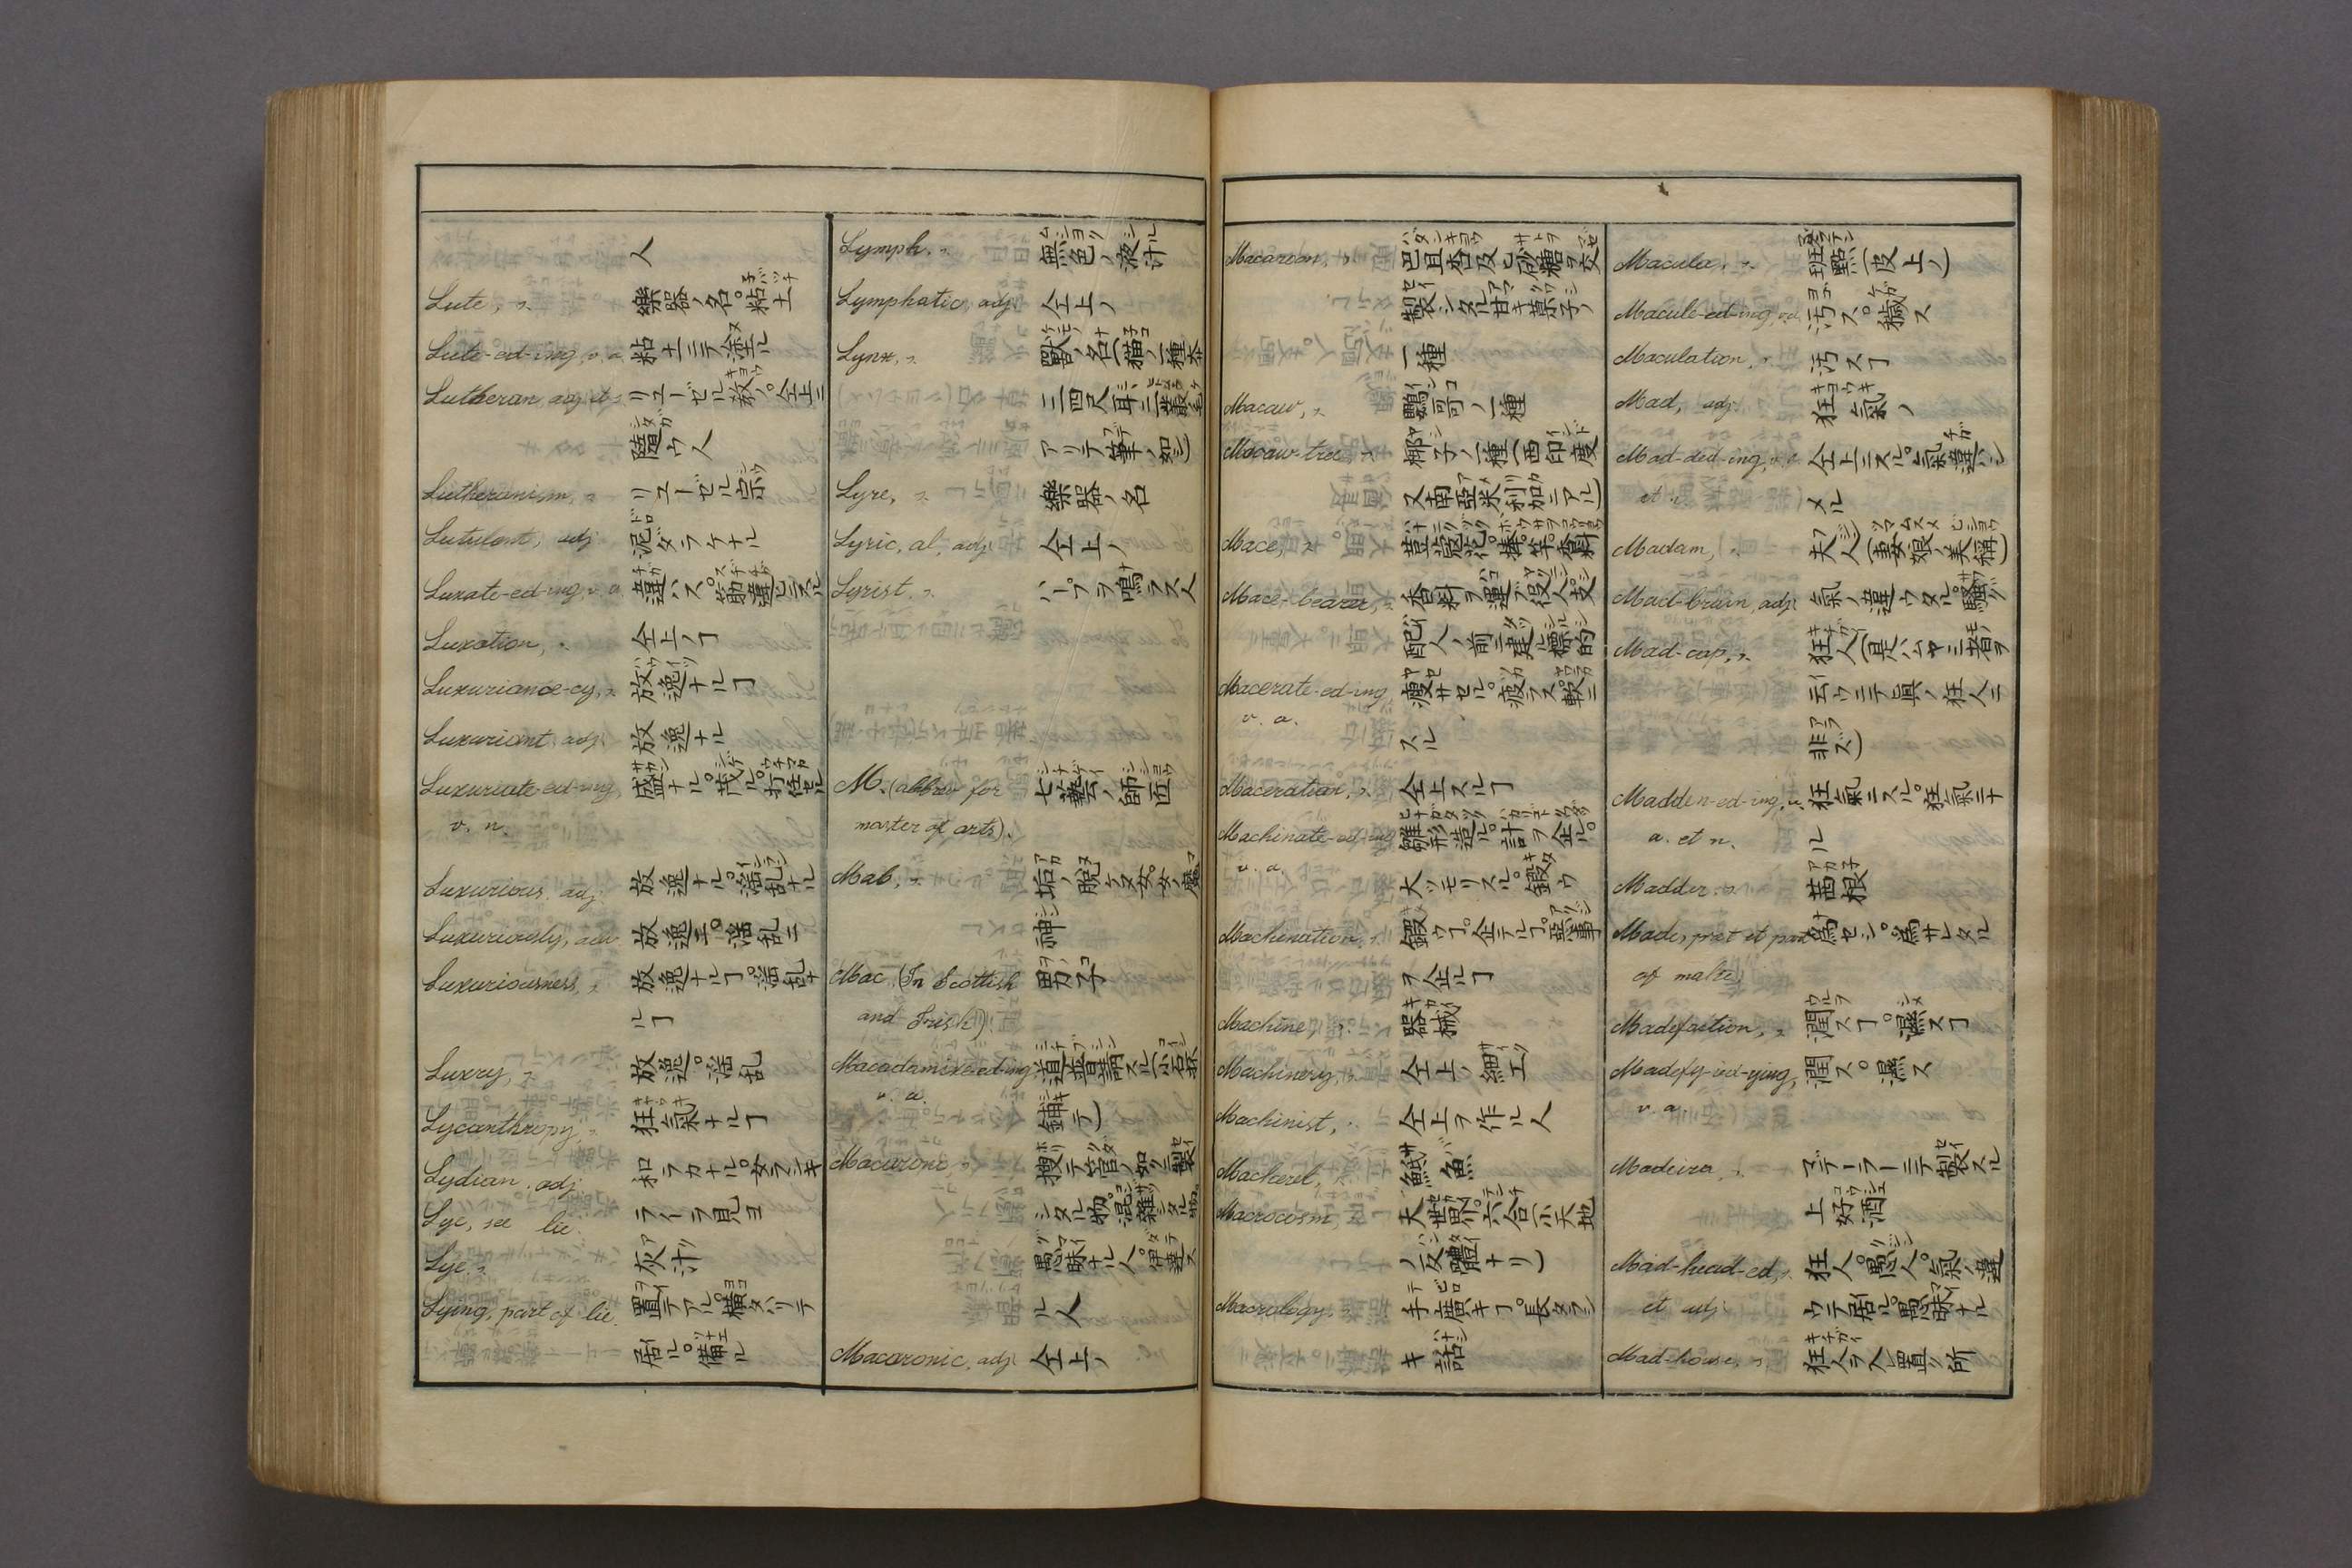 人
Lute, n. 樂器ノ名。粘土
Lute-ed-ing, v. a. 粘土ニテ塗ル
Lutheran, adj. et s. リユーゼル教ノ。仝上ニ
隨ウ人
Lutheranism, n. リユーゼル宗
Lutulent, adj. 泥ダラケナル
Luxate-ed-ing, v. a. 違ハス。筋違ヒニスル
Luxation, n. 仝上ノ
Luxuriance-cy, n. 放逸ナルヿ
Luxuriant, adj. 放逸ナル
Luxuriate-ed-ing, 盛ナル。茂ル。打任セル
v. n.
Luxurious, adj. 放逸ナル。淫乱ナル
Luxuriously, adv. 放逸ニ。淫乱ニ
Luxuriousness, n. 放逸ナルヿ。淫乱ナ
ルヿ
Luxry, n. 放逸。淫乱
Lycanthropy, n. 狂氣ナルヿ
Lydian, adj. 和ラカナル。女ラシキ
Lye, see lie. ライヲ見ヨ
Lye, n. 灰汁
Lying, part of lie. 置テアル。横タハツテ
居ル。備ル
Lymph, n. 無色ノ液汁
Lymphatic, adj. 仝上ノ
Lynx, n. 獸ノ名(猫ノ一種大
三四尺耳ニ叢毛
アリテ筆ノ如シ)
Lyre, n. 樂器ノ名
Lyric, al, adj. 仝上ノ
Lyrist, n. ハープヲ鳴ラス人
M. (abbrev for 七藝ノ師匠
master of arts).
Mab, n. 女ノ魔
神
Mac (In Scottish 男子
and Irish)
Macadamize-ed-ing, 道普請スル(小石ヲ
v. a. 鋪テ)
Macaroni, n. 管ノ如クニ製
シタル物。混雜シタル物。
愚昧ナル人。
ル人
Macaronic, adj. 仝上ノ
Macaroon, n. 巴旦杏及ヒ砂糖ヲ交
製シタル甘キ菓子ノ
一種
Macaw, n. 鸚哥ノ一種
Macaw-tree, n. 椰子ノ一種(西印度
又南亞米利加ニアル)
Mace, n. 荳蔲花。棒。竿。香料
Mace-bearer, n. 香料ヲ運ブ役人。支
配人ノ前ニ建ル標的
Macerate-ed-ing, 瘦サセル。疲ラス。軟ニ
v. a. スル
Maceration, n. 仝上スルヿ
Machinate-ed-ing 雛形造ル。計ヲ企ル。
v. a. 大ツモリスル。鍛ウ
Machination, n. 鍛ウヿ。企テルヿ。惡事
ヲ企ルヿ
Machine, n. 器械
Machinery, n. 仝上ノ細工
Machinist, n. 仝上ヲ作ル人
Mackerel, n. 魚
Macrocosm, n. 大世界。六合(小天地
ノ反體ナリ)
Macrology, n. 手廣キヿ。長タラシ
キ話
Macula, n. 斑點(皮上ノ)
Macule-ed-ing, v. a. 汚ス。穢ス
Maculation, n. 汚スヿ
Mad, adj. 狂氣ノ
Mad-ded-ing, v. a. 仝上ニスル。氣違ハシ
et n. メル
Madam, n. 夫人(妻娘ノ美稱)
Mad-brain, adj. 氣ノ違ウタル。騒ク
Mad-cap, n. 狂人(是ハムヤミ者ヲ
云ウニテ眞ノ狂人ニ
非ズ)
Madden-ed-ing, v. 狂氣ニスル。狂氣ニナ
a. et n. ル
Madder, n. 茜根
Made, pret et part 爲セシ。爲サレタル
of make
Madefaction, n. 潤スヿ。濕スヿ
Madefy-ied-ying, 潤ス。濕ス
v. a.
Madeira, n. マデーラーニテ製スル
上好酒
Mad-head-ed, n. 狂人。愚人。氣ノ違
et adj. ウテ居ル。愚昧ナル
Mad-house, n. 狂人ヲ入レ置ク所